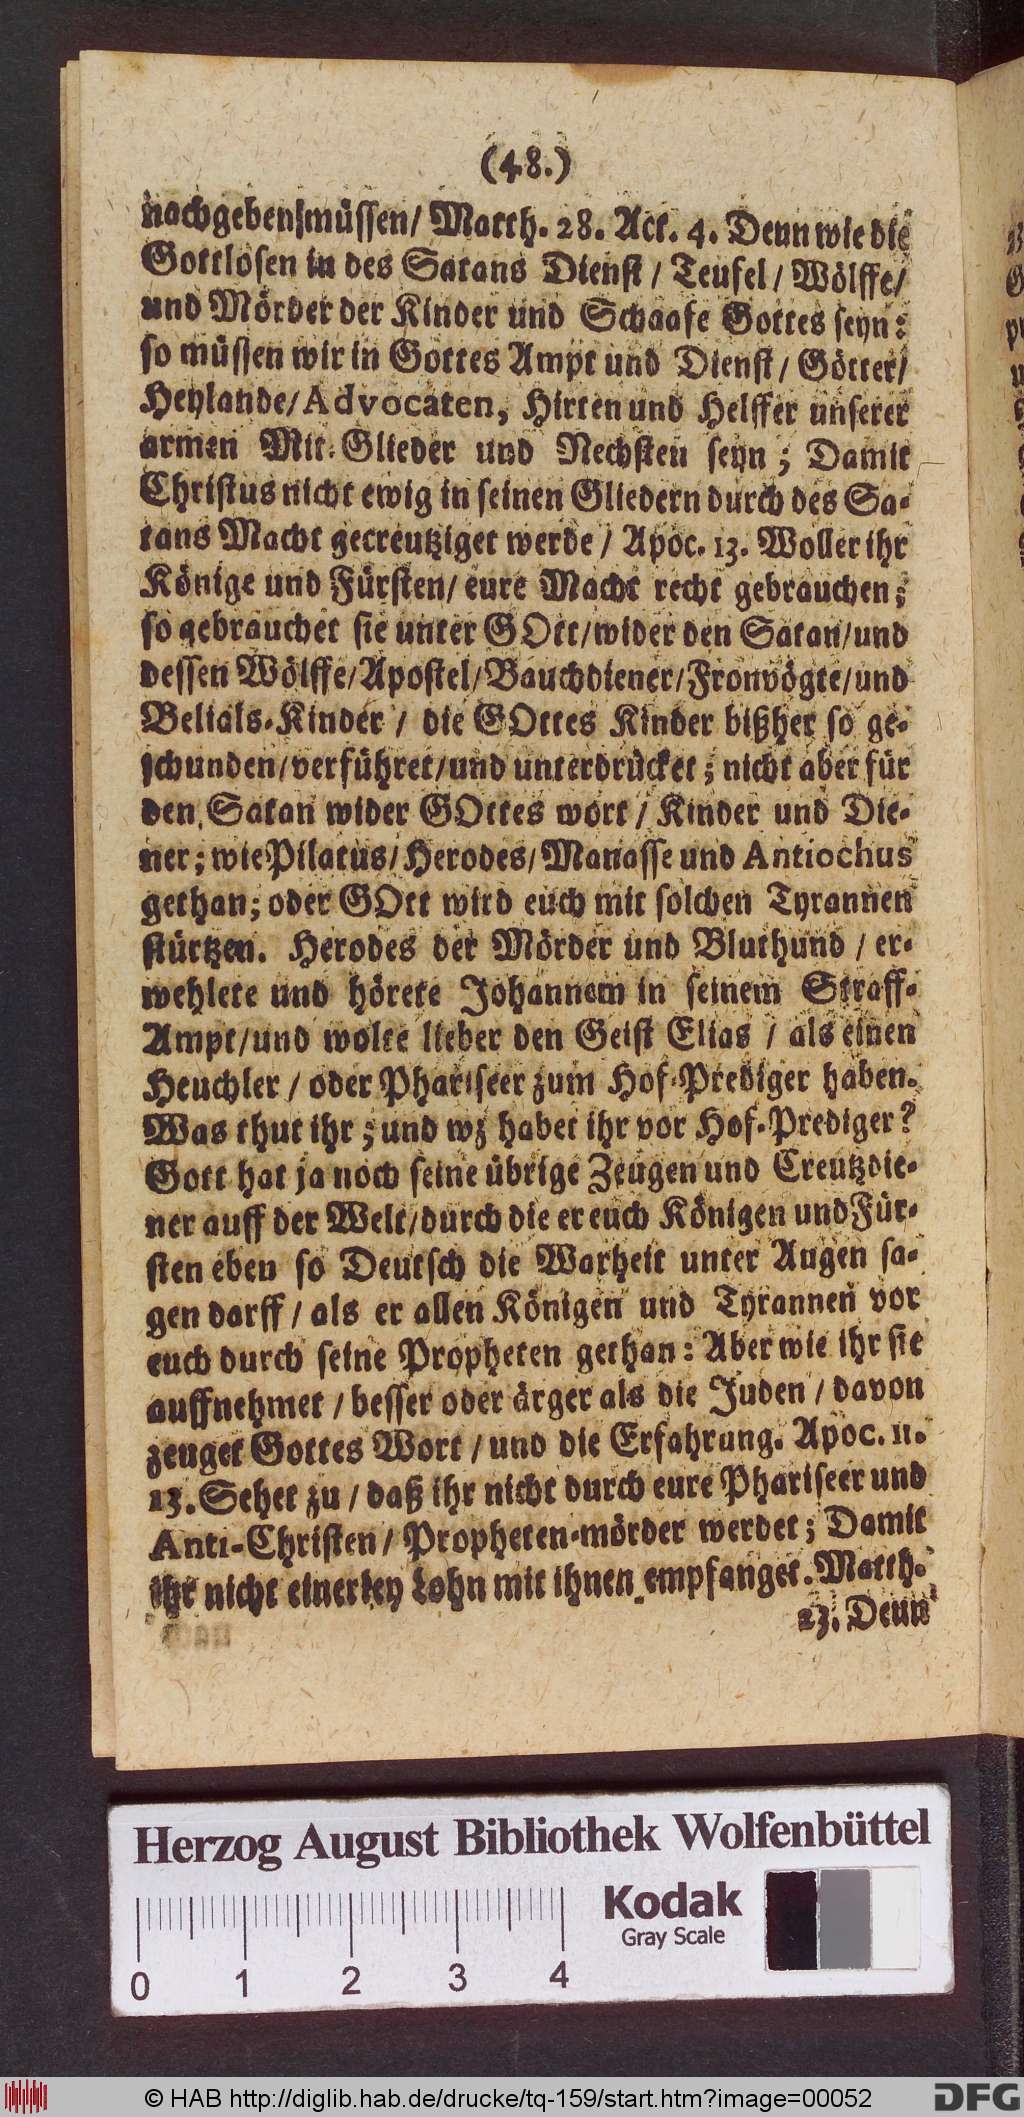 (48.)
nachgeben müssen/ Matth. 28. Act. 4. Denn wie die
Gottlosen in des Satans Dienst / Teufel / Wölffe/
und Mörder der Kinder und Schaafe Gottes seyn:
so müssen wir in Gottes Ampt und Dienst / Götter/
Heylande/ Advocaten, Hirten und Helffer unserer
armen Mit-Glieder und Nechsten seyn ; Damit
Christus nicht ewig in seinen Gliedern durch des Sa-
tans Macht gecreutziget werde / Apoc. 13. Wollet ihr
Könige und Fürsten/ eure Macht recht gebrauchen;
so gebrauchet sie unter GOtt/wider den Satan/und
dessen Wölffe/Apostel/Bauchdiener/Fronvögte/und
Belials-Kinder / die GOttes Kinder bißher so ge-
schunden/verführet/und unterdrücket ; nicht aber für
den Satan wider GOttes wort / Kinder und Die-
ner ; wie Pilatus/ Herodes/ Manasse und Antiochus
gethan; oder GOtt wird euch mit solchen Tyrannen
stürtzen. Herodes der Mörder und Bluthund / er-
wehlete und hörete Johannem in seinem Straff-
Ampt/und wolte lieber den Geist Elias / als einen
Heuchler / oder Phariseer zum Hof-Prediger haben.
Was thut ihr ; und wz habet ihr vor Hof-Prediger?
Gott hat ja noch seine übrige Zeugen und Creutzdie-
ner auff der Welt/durch die er euch Königen und Für-
sten eben so Deutsch die Warheit unter Augen sa-
gen darff / als er allen Königen und Tyrannen vor
euch durch seine Propheten gethan: Aber wie ihr sie
auffnehmet / besser oder ärger als die Juden / davon
zeuget Gottes Wort / und die Erfahrung. Apoc. 11.
13. Sehet zu / daß ihr nicht durch eure Phariseer und
Anti-Christen/ Propheten-mörder werdet; Damit
ihr nicht einerley Lohn mit ihnen empfanget. Matth.
23. Denn
Herzog August Bibliothek Wolfenbüttel
Kodak
Gray Scale
0 1 2 3 4
© HAB http://diglib.hab.de/drucke/tq-159/start.htm?image=00052
DFG